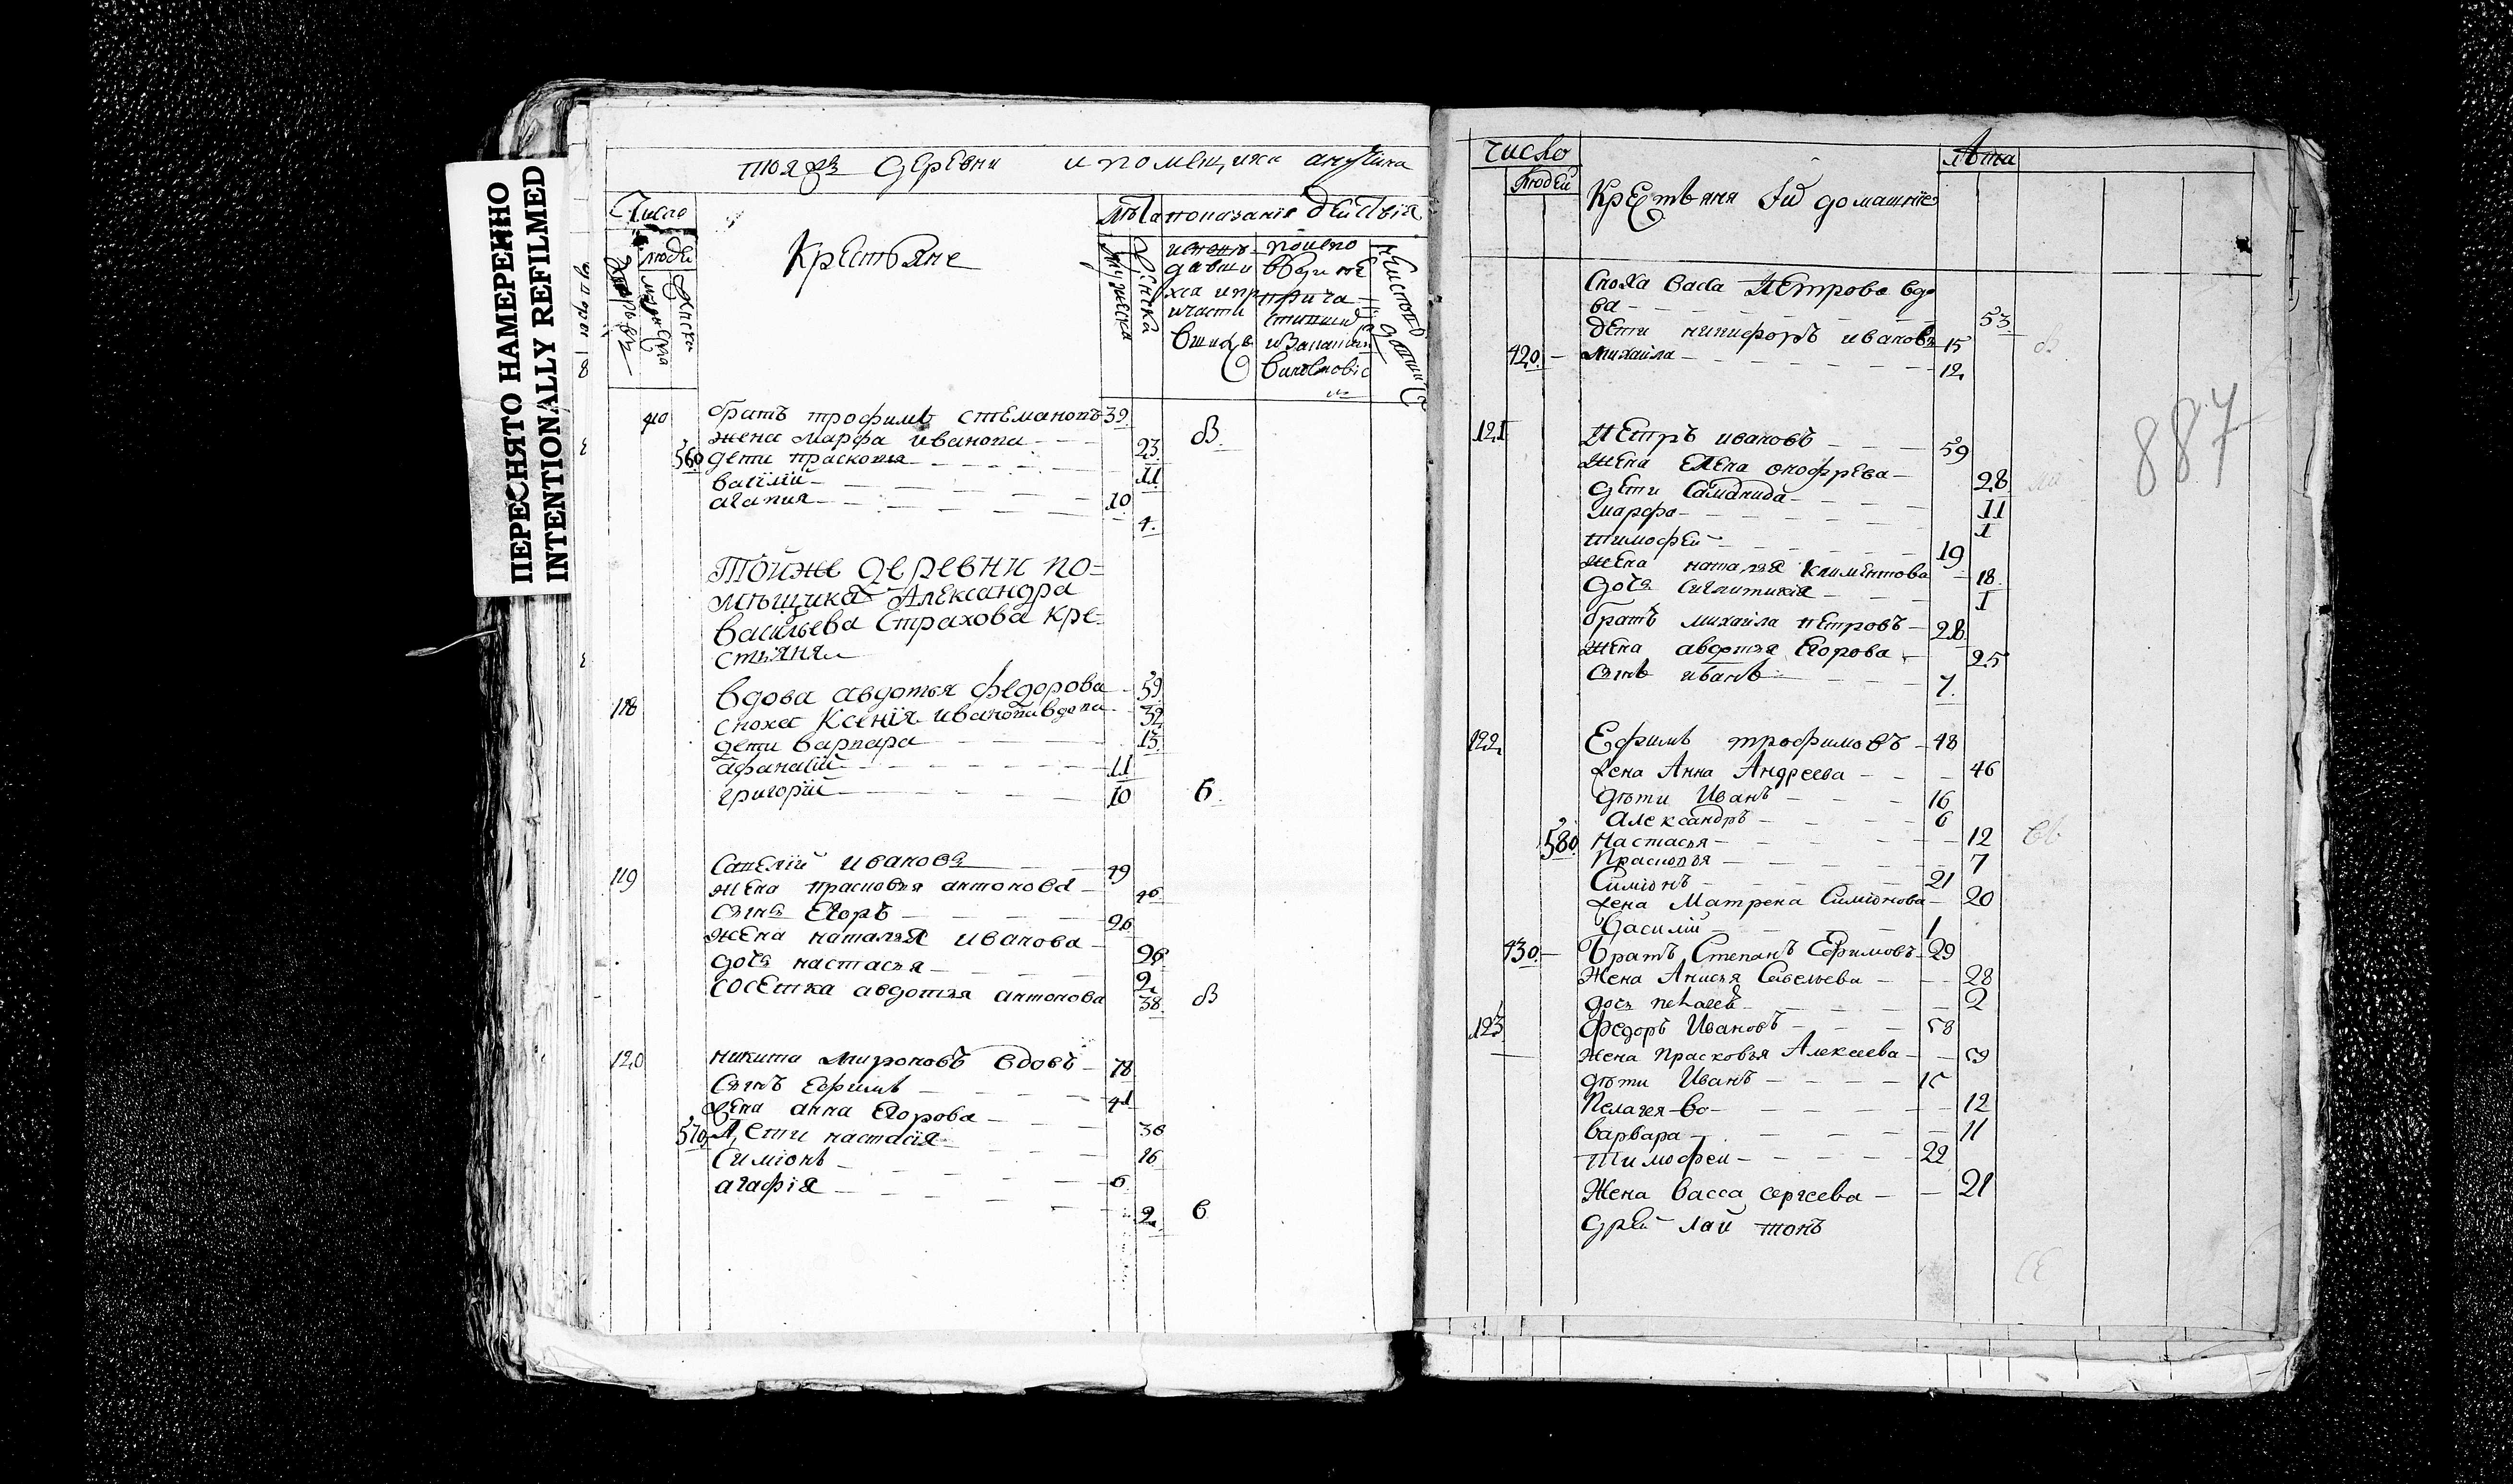 ПЕРЕСНЯТО НАМЕРЕННО
INTENTIONALLY REFILMED
тояжъ деревни и помещика
Число
людей
Крестьяне
лѣта показание действа
мужеска
женска
410 братъ трофимъ степановъ 39
жена марфа иванова 23
560 дети прасковия 11
василий 10
агапия 4
Тойже деревни по=
мѣщика Александра
Васильева Страхова кре-
стьяня
118 вдова авдотья федорова 59
сноха Ксенїя иванова вдова 32
дети варвара 13
афанасий 11
григорий 10 в
119 Савелий ивановъ 49
жена прасковья антонова 46
сынъ Егоръ 26
жена наталья иванова 26
дочь настасья 2
соседка авдотья антонова 38
120 никита мироновъ вдовъ 78
Сынъ Ефимъ 41
жена анна Егорова 36
570 Дети настасїя 16
Симионъ 6
агафїя 2 в
число
людей
Крестьяня
лѣта
887
Сноха васа петрова вдо
ва 53
дети никифоръ ивановъ 15
420 михайла 12
121 петръ ивановъ 59
жена елена онофрева 28
дети Саламанида 11
марфа 1
тимофей 19
жена наталья климентова 18
дочь 1
братъ михайла петровъ 28
жена авдотья Егорова 25
сынъ иванъ 7
122 Ефимъ трофимовъ 48
жена Анна Андреева 46
дѣти Иванъ 16
Александръ 6
580 Настасья 12
Прасковья 7
Симіонъ 21
жена Матрена Симіонова 20
Василій 1
430 Братъ Степанъ Ефимовъ 29
Жена Анисья Савельева 28
дочь пелагея 2
123 Федоръ Ивановъ 58
жена Прасковья Алексеева 59
дѣти Иванъ 15
Пелагея-во 12
варвара 11
тимофеи 22
Жена васса сергеева 21